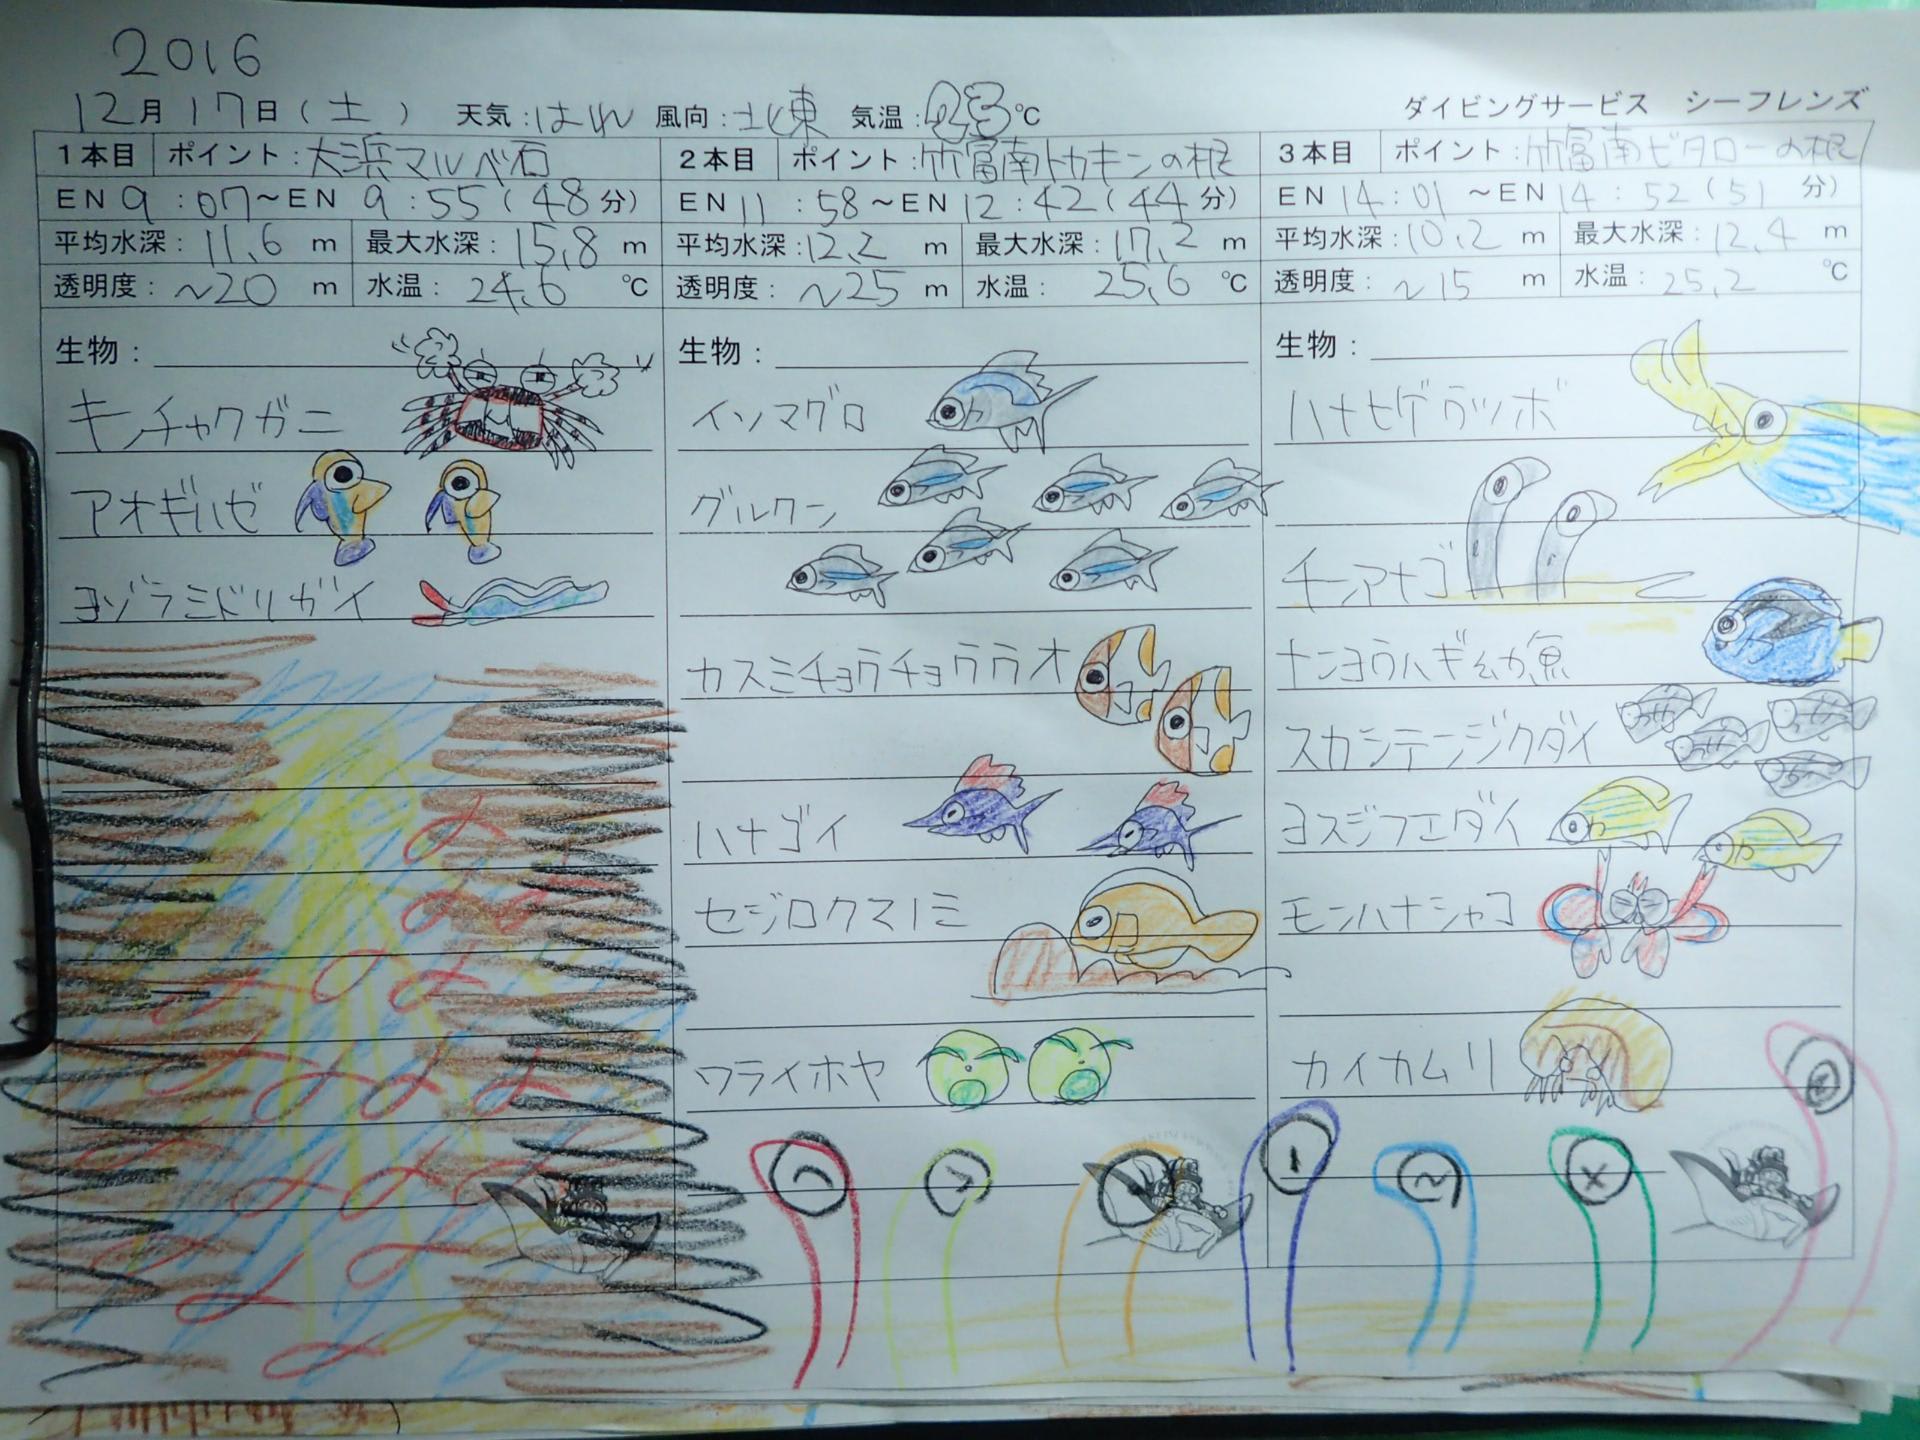 2016
12月17日(土) 天気:はれ 風向:北東 気温:23℃ ダイビングサービス シーフレンズ
1本目 ポイント:大浜マルベ石
EN 9:07～EN 9:55(48分)
平均水深:11.6m 最大水深:15.8m
透明度:~20m 水温:24.6℃
生物:
キンチャクガニ
アオギハゼ
ヨゾラミドリガイ
2本目 ポイント:竹富南トカキンの根
EN 11:58～EN 12:42(44分)
平均水深:12.2m 最大水深:17.2m
透明度:~25m 水温:25.6℃
生物:
イソマグロ
グルクン
カスミチョウチョウウオ
ハナゴイ
セジロクマノミ
ワライホヤ
3本目 ポイント:竹富南ビタローの根
EN 14:01～EN 14:52(51分)
平均水深:10.2m 最大水深:12.4m
透明度:~15m 水温:25.2℃
生物:
ハナヒゲウツボ
チンアナゴ
ナンヨウハギ幼魚
スカシテンジクダイ
ヨスジフエダイ
モンハナシャコ
カイカムリ